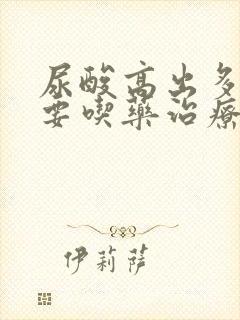 尿酸高出多
要喫藥治療
伊莉薩